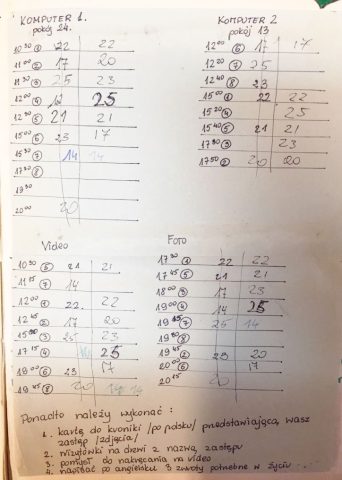 KOMPUTER 1.
pokój 24.
10 30 ① 22 22
11 00 ② 17 20
11 30 ③ 25 23
12 00 ④ 25
12 30 ⑤ 21 21
15 00 ⑥ 23 17
15 30 ⑦ 14 14
17 00 ⑧
17 30
20 00 20
KOMPUTER 2
pokój 13
12 00 ⑥ 17 17
12 20 ⑦ 25
12 40 ⑧ 23
15 00 ① 22 22
15 20 ④ 25
15 40 ⑤ 21 21
17 30 ③ 23
17 50 ② 20 20
Video
10 30 ⑤ 21 21
11 15 ⑦ 14
12 00 ① 22 22
12 45 ② 17 20
15 00 ③ 25 23
17 15 ④ 25
19 00 ⑥ 23 17
19 45 ⑧ 20
Foto
17 30 ① 22 22
17 45 ⑤ 21 21
18 00 ③ 17 23
19 00 ④ 14 25
19 15 ⑦ 25 14
19 30 ⑧
19 45 ② 23 20
20 00 ⑥ 17
20 15 20
Ponadto należy wykonać :
1. kartę do kroniki /po polsku/ przedstawiającą wasz
zastęp /zdjęcia/
2. wizytówki na drzwi z nazwą zastępu
3. pomysł do nakręcania na video
4. napisać po angielsku 3 zwroty potrzebne w życiu ...